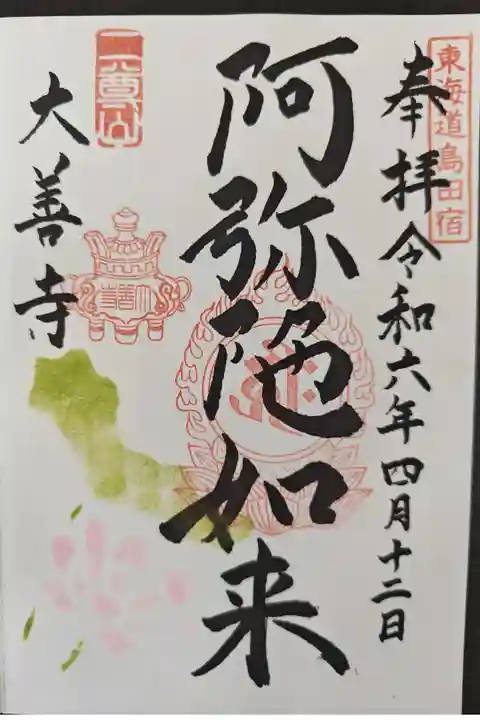 東海道島田宿
奉拝令和六年四月十二日
阿弥陀如来
三尊山
大善寺
大善寺